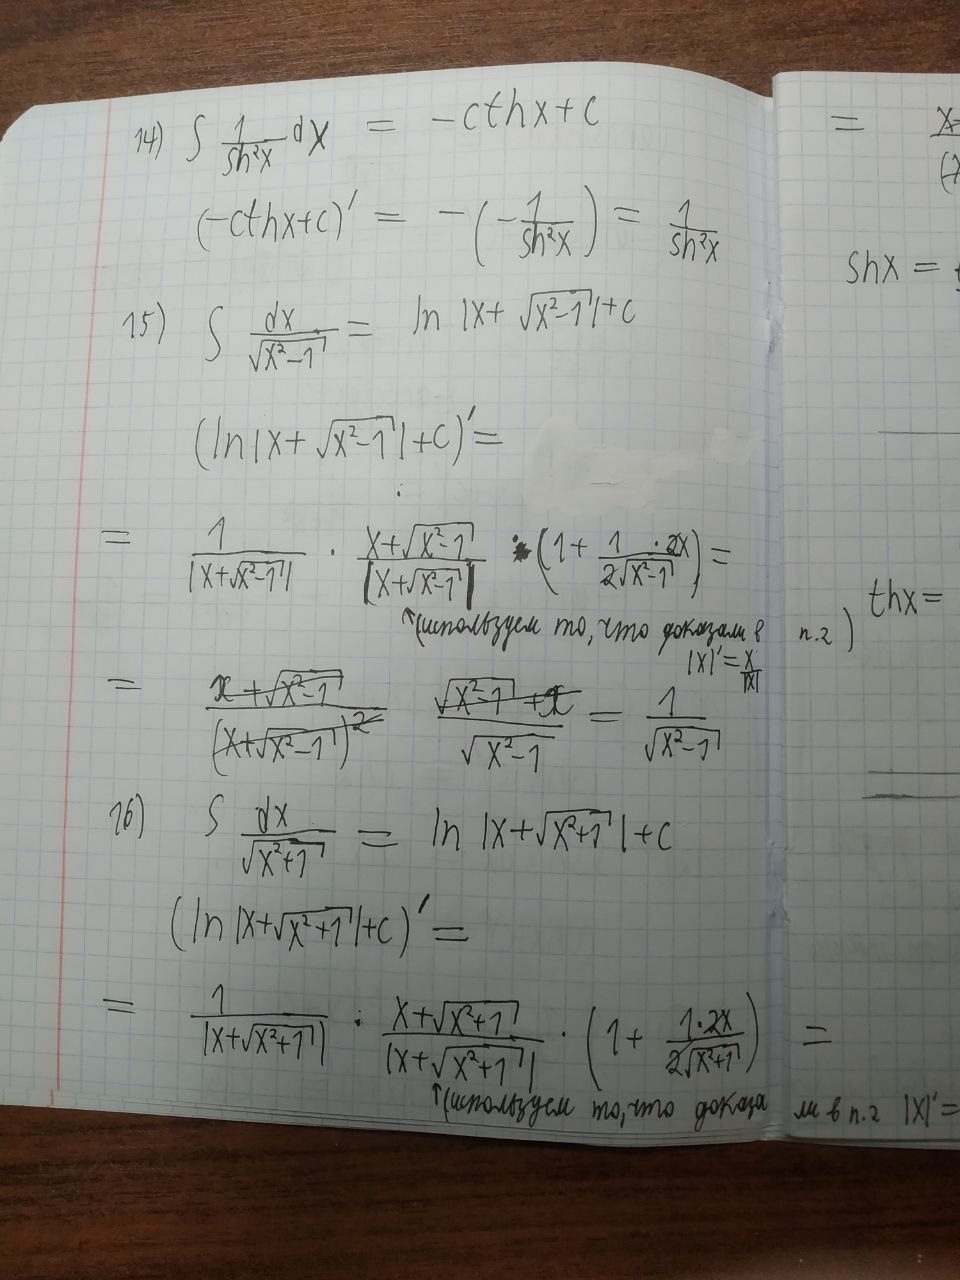 14) ∫ 1/sh²x dx = -cthx+c
(-cthx+c)' = -(-1/sh²x) = 1/sh²x
15) ∫ dx/√(x²-1) = ln |x+√(x²-1)|+c
(ln|x+√(x²-1)|+c)' =
= 1/|x+√(x²-1)| · (x+√(x²-1))/|x+√(x²-1)| · (1+ (1·2x)/(2√(x²-1))) =
↑(используем то, что доказали в п.2)
|x|'=x/|x|
= (x+√(x²-1))/(x+√(x²-1))² (√(x²-1)+x)/√(x²-1) = 1/√(x²-1)
16) ∫ dx/√(x²+1) = ln |x+√(x²+1)|+c
(ln|x+√(x²+1)|+c)' =
= 1/|x+√(x²+1)| · (x+√(x²+1))/|x+√(x²+1)| · (1+ (1·2x)/(2√(x²+1))) =
↑(используем то, что доказали в п.2 |x|'=
=
shx =
thx =